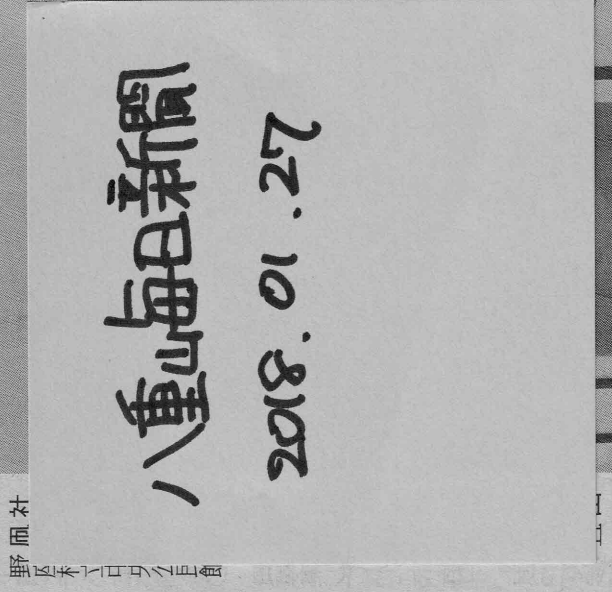 八重山毎日新聞
2018.01.27